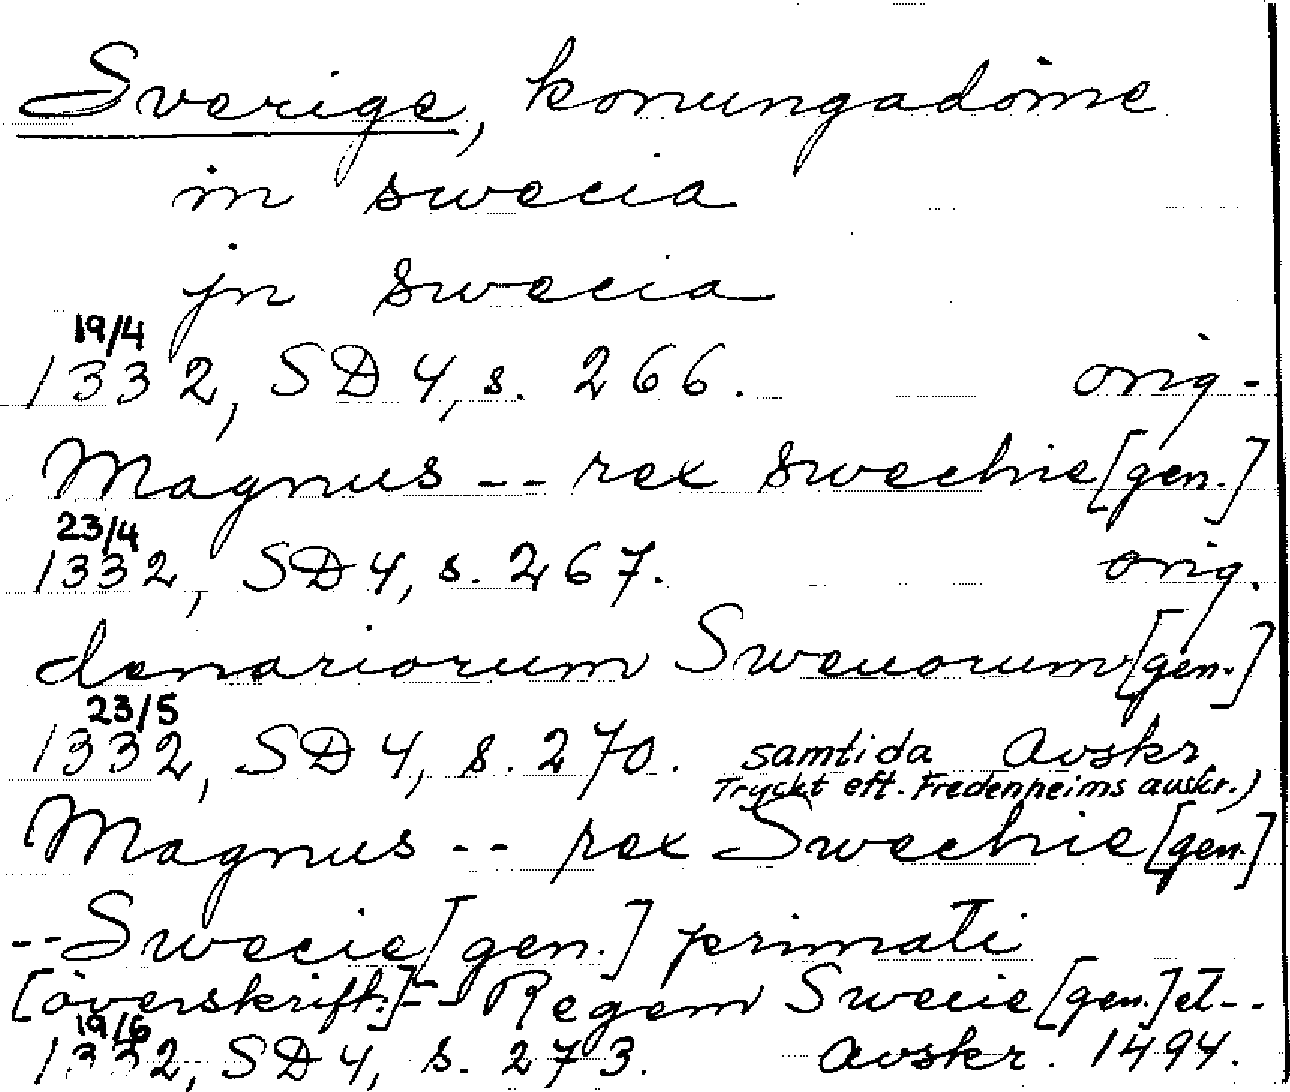 Sverige, konungadöme
in swecia
jn swecia
19/4
1332, SD 4, s. 266. orig.
Magnus -- rex swechie [gen.]
23/4
1332, SD 4, s. 267. orig.
denariorum Sweuorum [gen.]
23/5
1332, SD 4, s. 270. samtida Avskr.
Tryckt eft. Fredenheims avskr.)
Magnus -- rex Swechie [gen.]
-- Swecie [gen.] primati
[överskrift.] -- Regem Swecie [gen.] et --
19/6
1332, SD 4, s. 273. avskr. 1494.